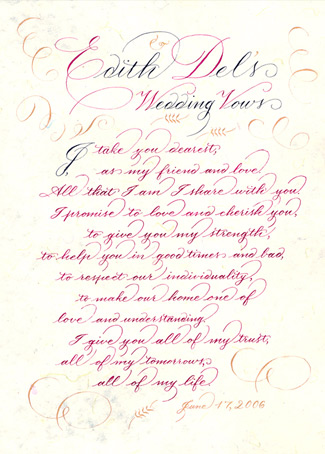 Edith Del's
Wedding Vows
I, take you dearest,
as my friend and love.
All that I am I share with you.
I promise to love and cherish you,
to give you my strength,
to help you in good times and bad,
to respect our individuality,
to make our home one of
love and understanding.
I give you all of my trust,
all of my tomorrows,
all of my life.
June 17, 2006